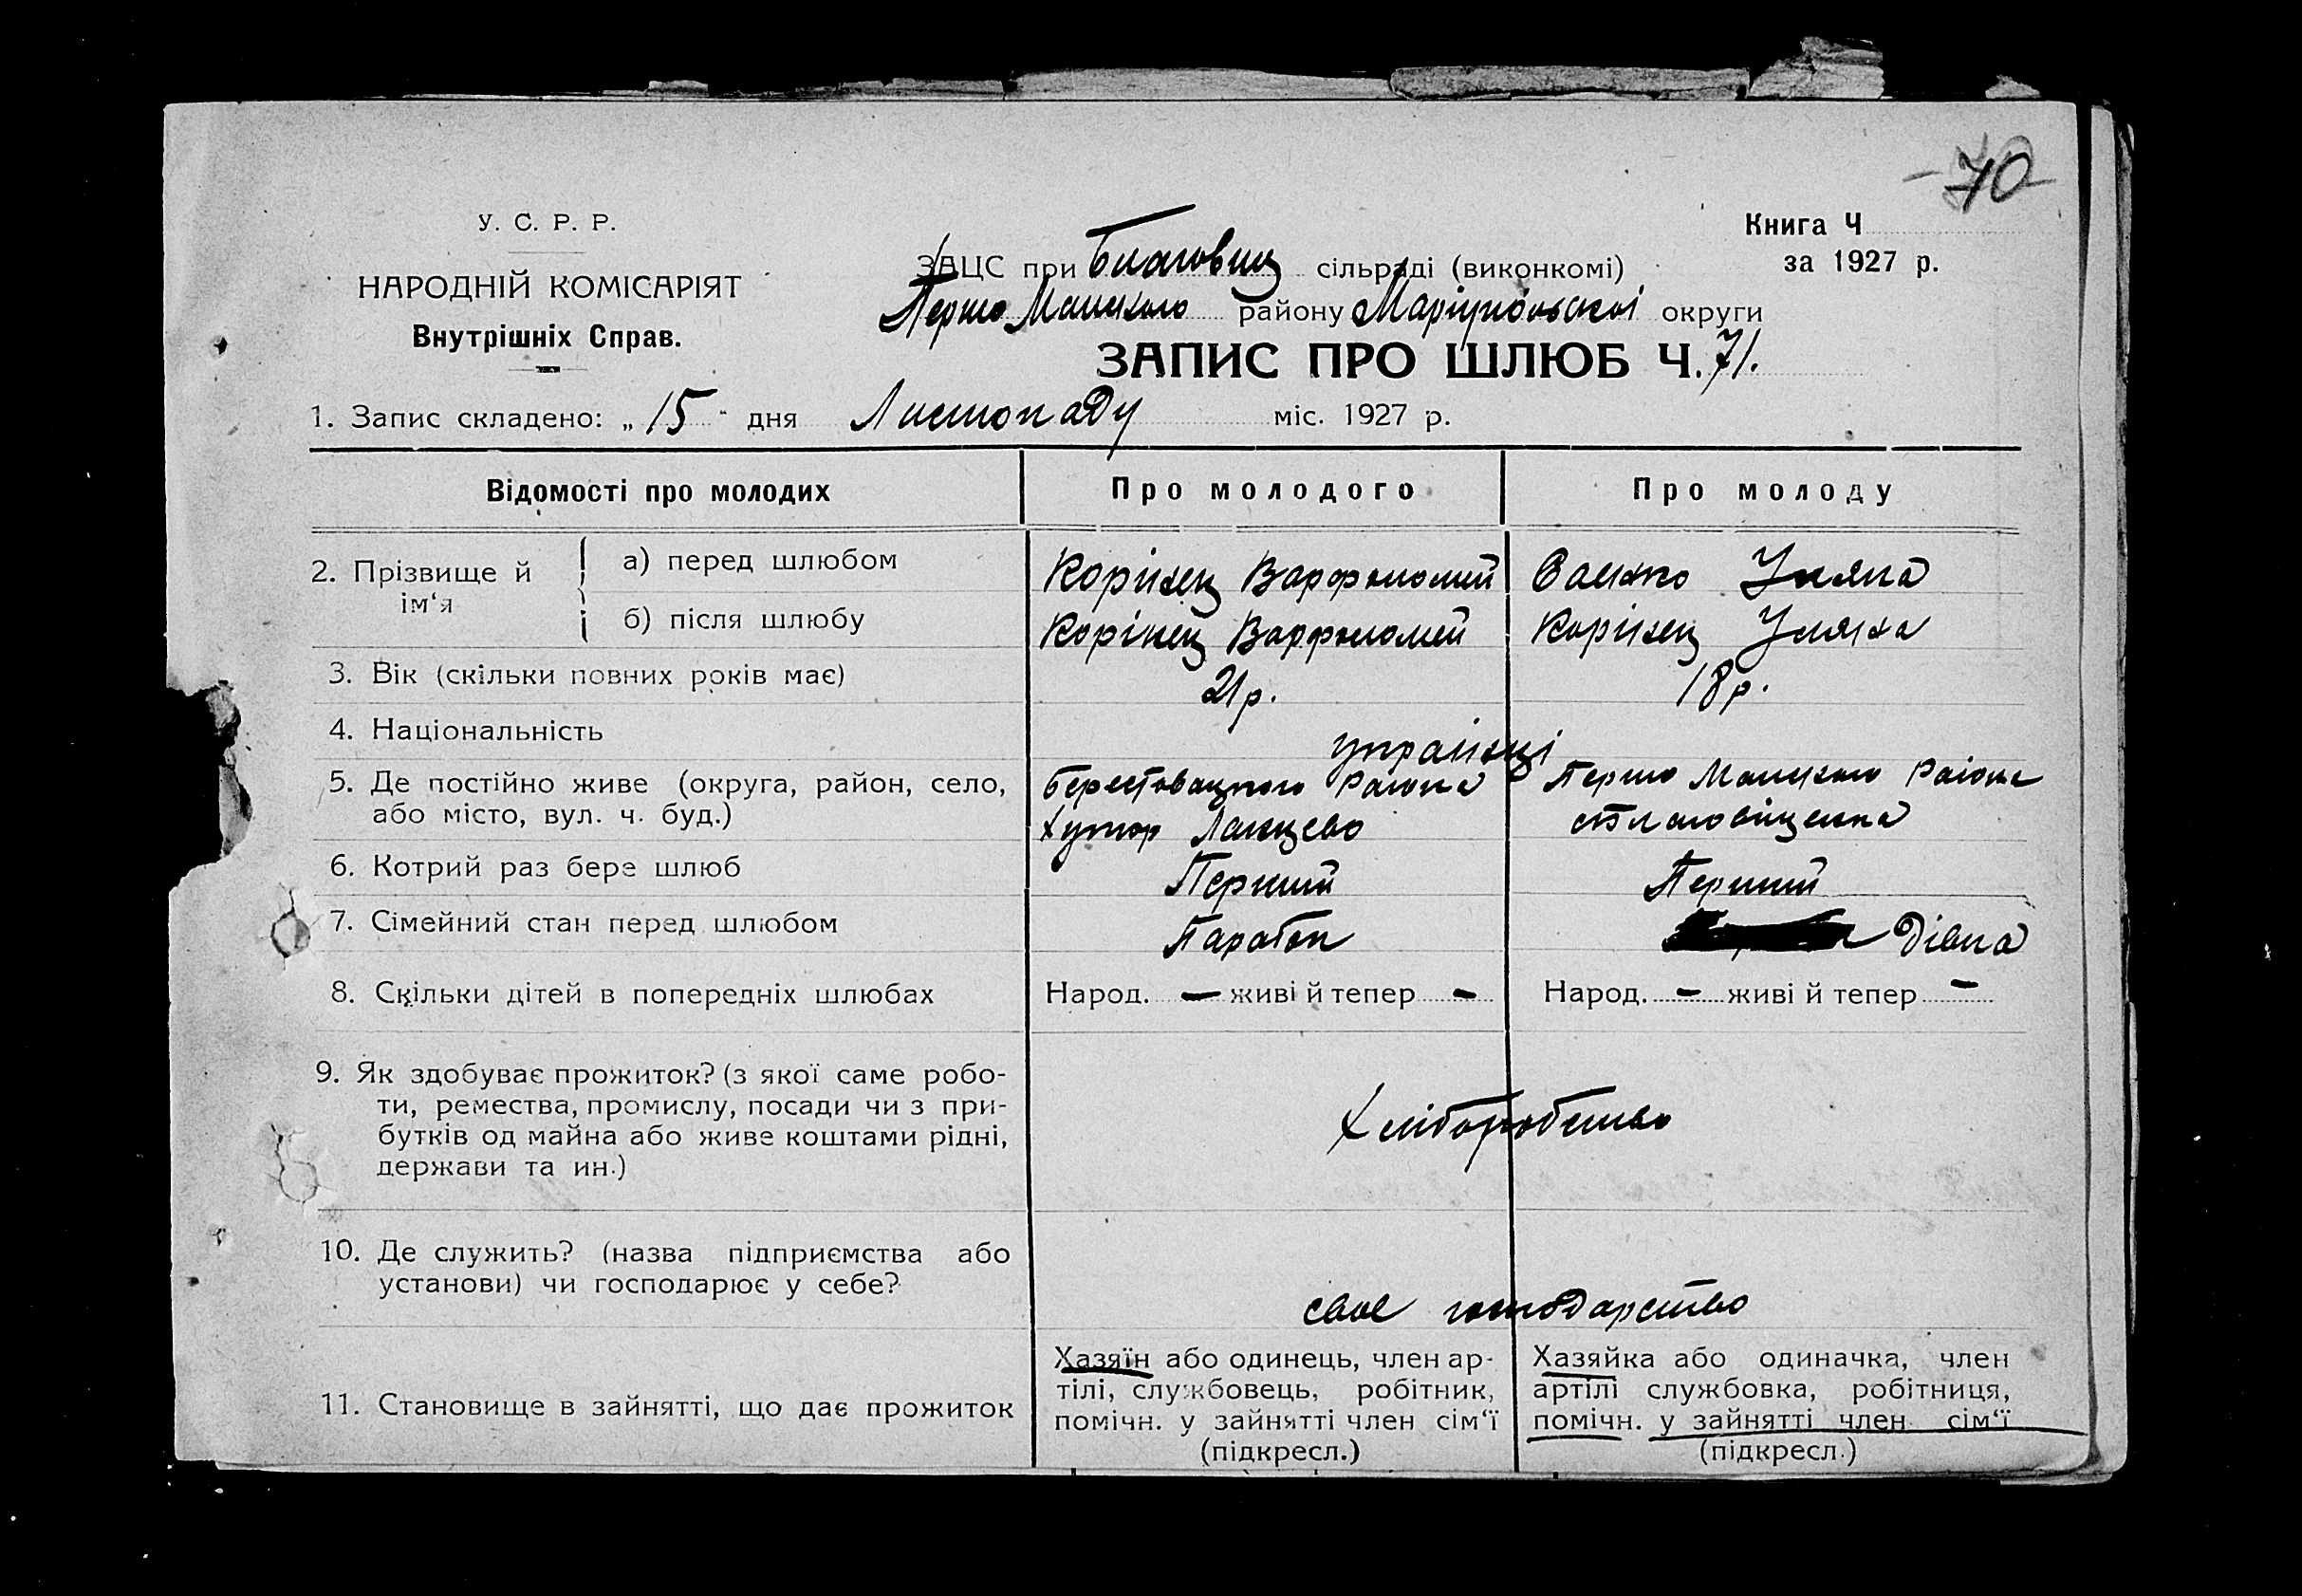 70
У. С. Р. Р.
НАРОДНІЙ КОМІСАРІЯТ
Внутрішніх Справ.
Книга Ч
за 1927 р.
ЗАЦС при Благовіщ сільраді (виконкомі)
Першо Манского району Маріупольскоі округи
ЗАПИС ПРО ШЛЮБ Ч. 71.
1. Запис складено: „ 15 " дня Листопаду міс. 1927 р.
Відомості про молодих
Про молодого
Про молоду
2. Прізвище й ім‘я
а) перед шлюбом
Корінец Варфоломей
Уляна
б) після шлюбу
Корінец Варфоломей
Корінец Уляна
3. Вік (скільки повних років має)
21 р.
18 р.
4. Національність
українці
5. Де постійно живе (округа, район, село,
або місто, вул. ч. буд.)
Берестовацкого Района
Хутор
Першо Манского Района
6. Котрий раз бере шлюб
Перший
Перший
7. Сімейний стан перед шлюбом
Паробок
Дівка
8. Скільки дітей в попередніх шлюбах
Народ. — живі й тепер —
Народ. — живі й тепер —
9. Як здобуває прожиток? (з якої саме робо-
ти, ремества, промислу, посади чи з при-
бутків од майна або живе коштами рідні,
держави та ин.)
Хліборобство
10. Де служить? (назва підприємства або
установи) чи господарює у себе?
свое господарство
11. Становище в зайнятті, що дає прожиток
Хазяїн або одинець, член ар-
тілі, службовець, робітник,
помічн. у зайнятті член сім‘ї
(підкресл.)
Хазяйка або одиначка, член
артілі службовка, робітниця,
помічн. у зайнятті член сім‘ї
(підкресл.)